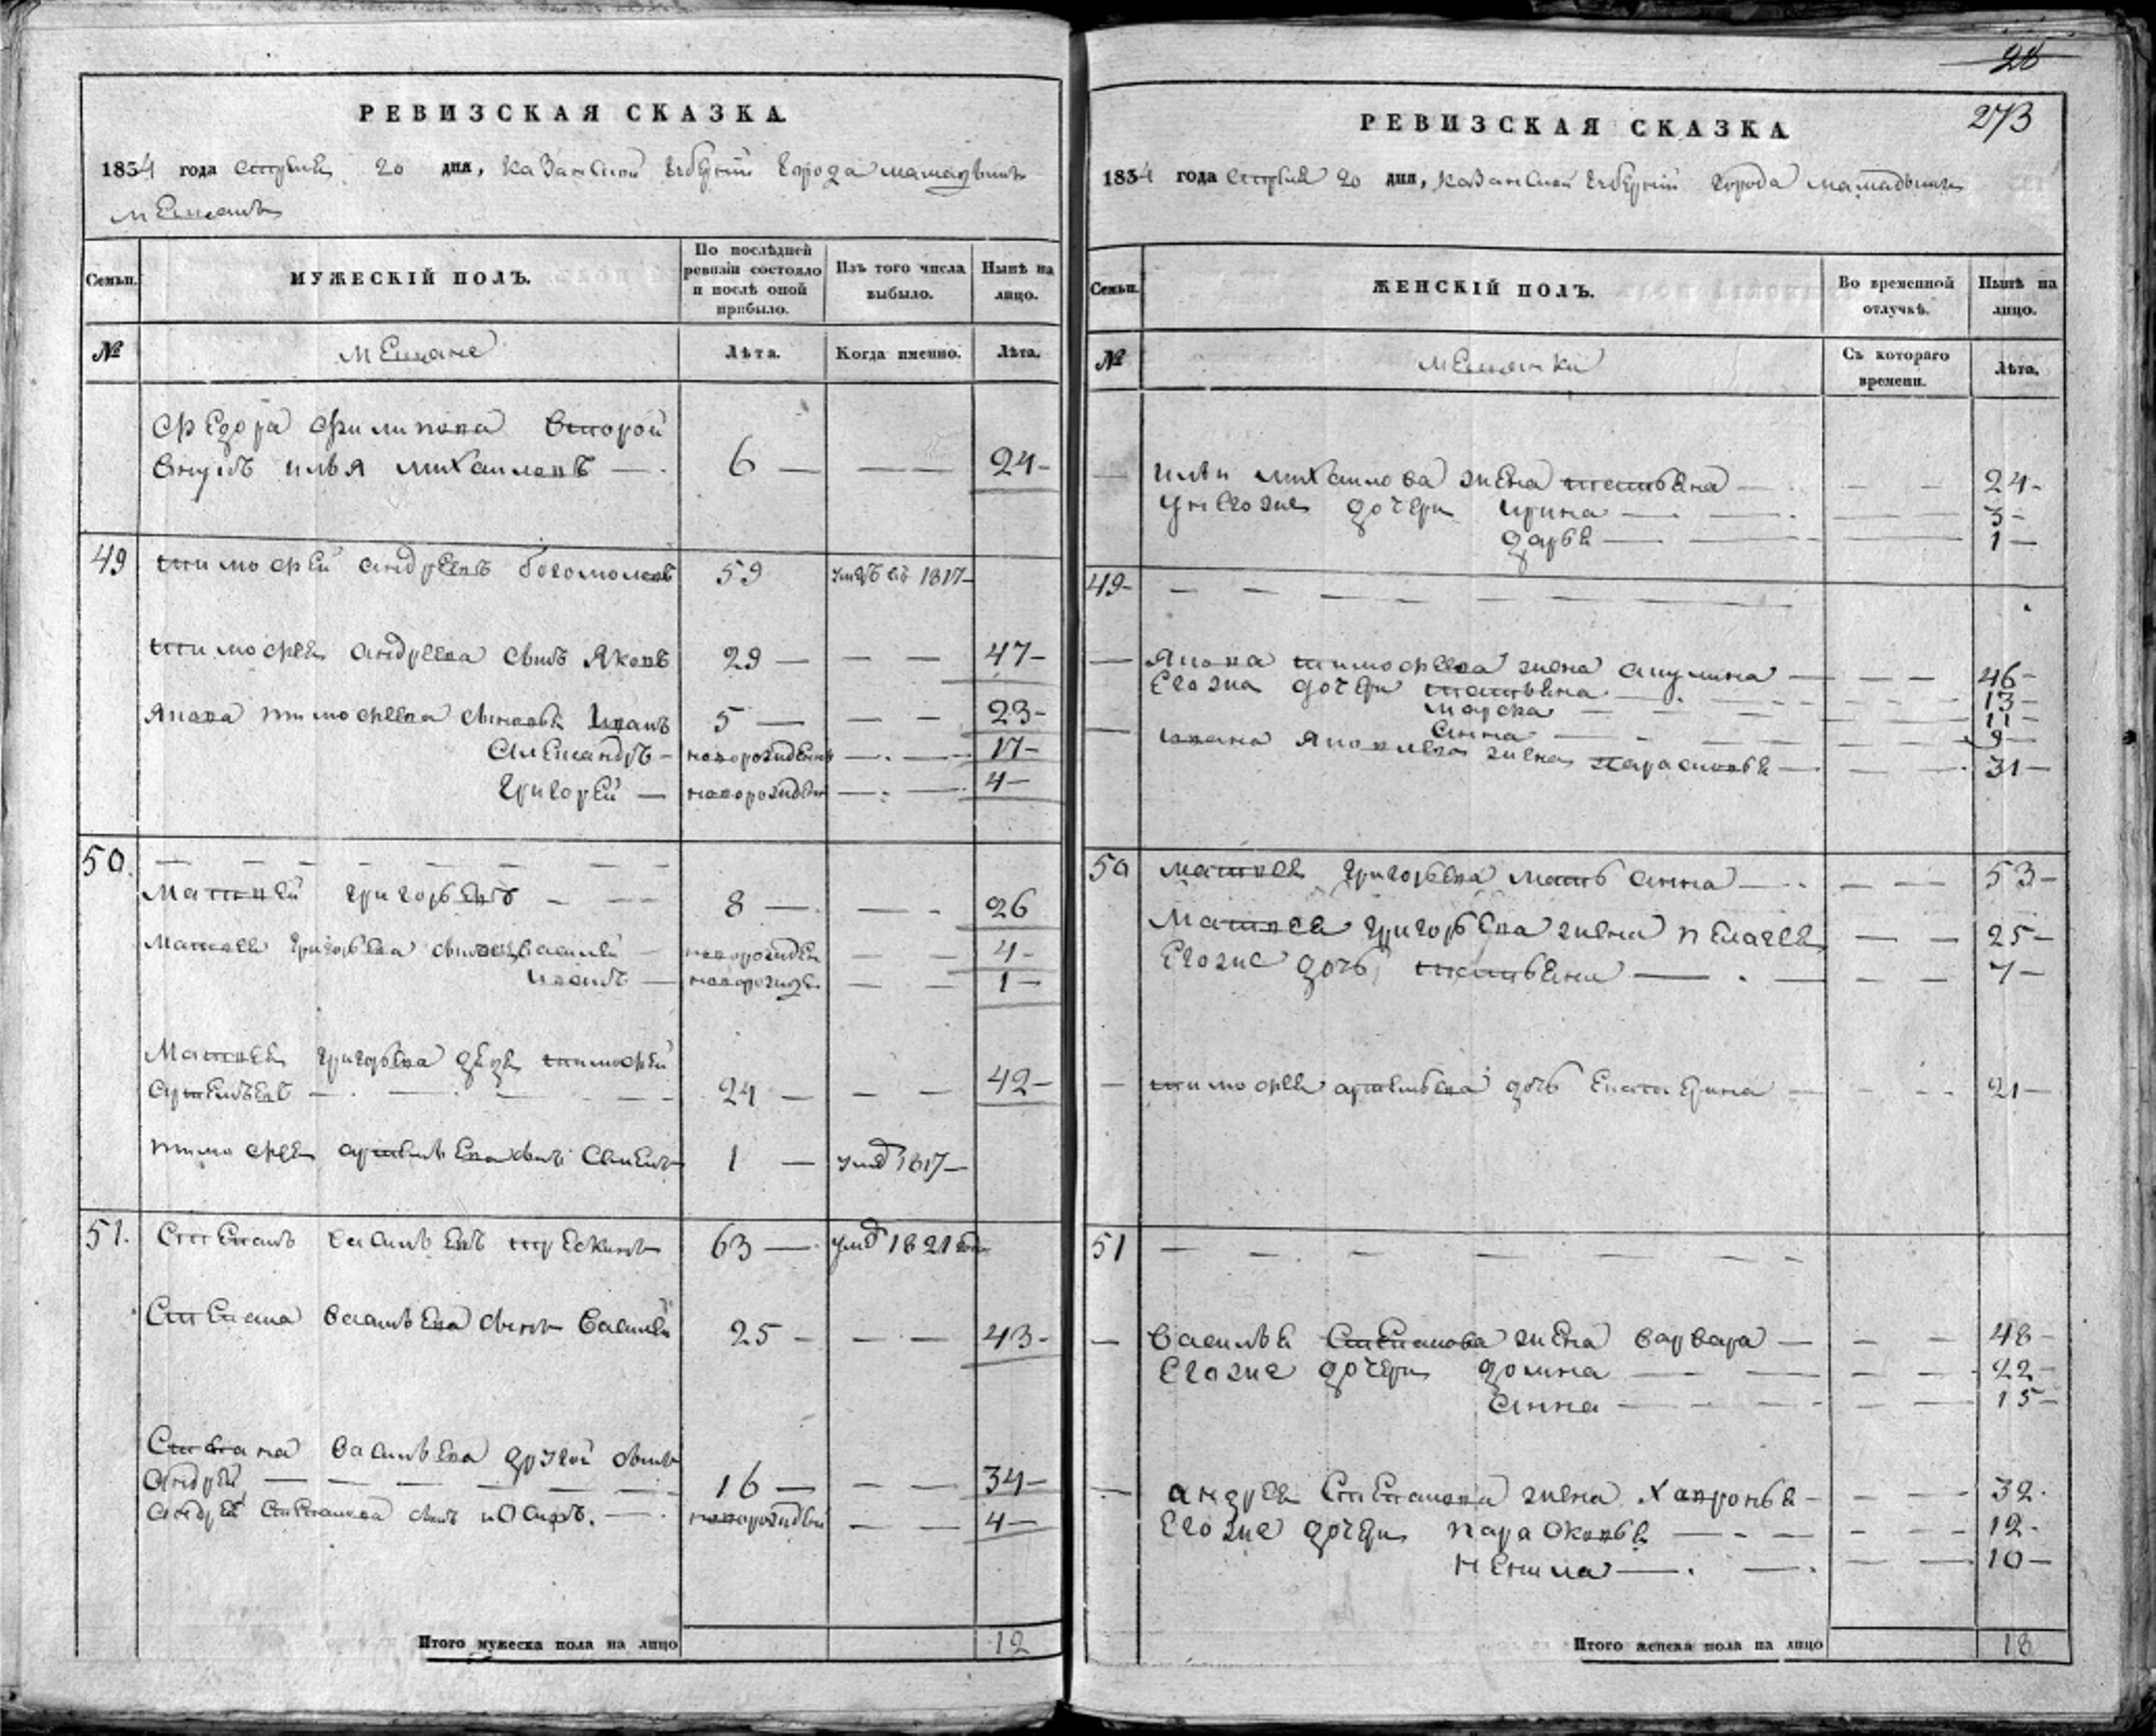 РЕВИЗСКАЯ СКАЗКА
1834 года 20 дня, Казанской губернии города мамадыша
мещанъ
Семьи. МУЖЕСКІЙ ПОЛЪ. По послѣдней ревизіи состояло и послѣ оной прибыло. Изъ того числа выбыло. Нынѣ на лицо.
№ мещане Лѣта. Когда именно. Лѣта.
Федора филипова второй
внукъ илья михаиловъ — 6 — — — 24-
49 тимофей андреевъ богомоловъ 59 1817-
тимофея андреева сынъ Яковъ 29 — — — 47-
Якова тимофеева сыновья Иванъ 5 — — — 23-
Александръ - новорожденъ — — 17-
григорей — новорожден — — 4-
50. — — — — — — — —
Матвей григорьевъ - — — 8 — — - 26
Матвея григорьева василей новорожден — — 4-
иванъ — новорожде — — 1-
Матвея григорьева дядя тимофей
артемьевъ — — — — — 24 — — — 42-
тимофея артемьева сынъ 1 — умеръ 1817-
51. Степанъ васильевъ 63 — умеръ 1821
Степана васильева сынъ василей 25 - — — 43-
Степана васильева другой сынъ
андрей — — — — — — 16 — — — 34-
андрея степанова сынъ иосифъ. — новорожден — — 4-
Итого мужеска пола на лицо 12
28
273
РЕВИЗСКАЯ СКАЗКА
1834 года 20 дня, казанской губернии города мамадыша
Семьи. ЖЕНСКІЙ ПОЛЪ. Во временной отлучкѣ. Нынѣ на лицо.
№ мещанки Съ котораго времени. Лѣта.
— ильи михаилова жена татьяна — — — 24-
дочери ирина — — — — 3-
дарья — — — — 1-
49- — — — — — — — —
— Якова тимофеева жена акулина — — — 46-
Его же дочери татьяна — — — 13-
марфа — — — — 11-
анна — — — — 9-
— ивана Яковлева жена парасковья — — — 31-
50 матвея григорьева мать анна — — — 53-
Матвея григорьева жена пелагея — — 25-
Его же дочь татьяна — — — — 7-
— тимофея артемьева дочь Екатерина — - - 21-
51 — — — — — — — —
— василья Степанова жена варвара — — — 48-
Его же дочери домна — — — — 22-
анна — — — — 15-
— андрея Степанова жена Хавронья - — — 32-
Его же дочери парасковья — - — - — 12-
ненила — — — — 10-
Итого женска пола на лицо 18